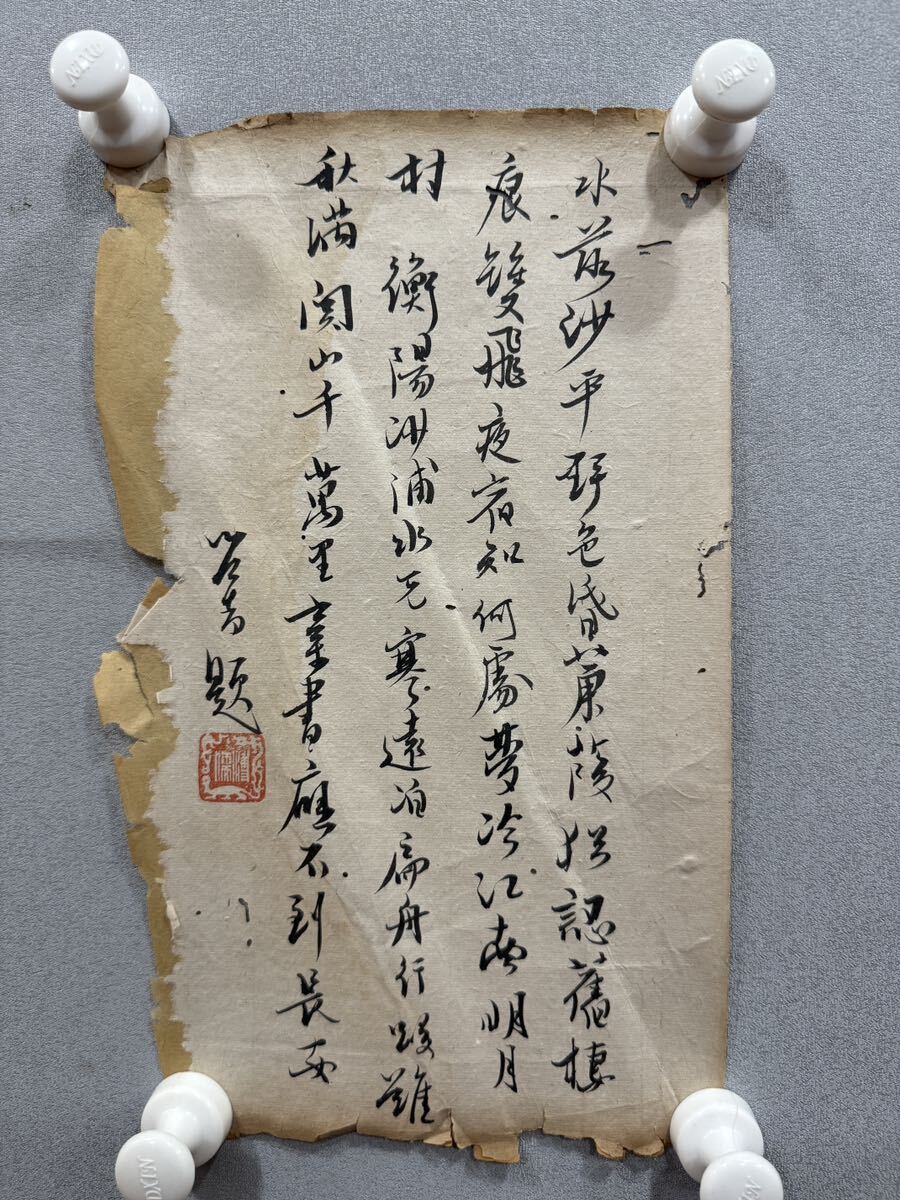 水落沙平野色昏陰猶認舊棲
痕雙飛夜宿知何處夢冷江南明月
村 衡陽沙浦水光寒遠泊扁舟行路難
秋滿関山千萬里寄書應不到長安
心畬題
溥儒